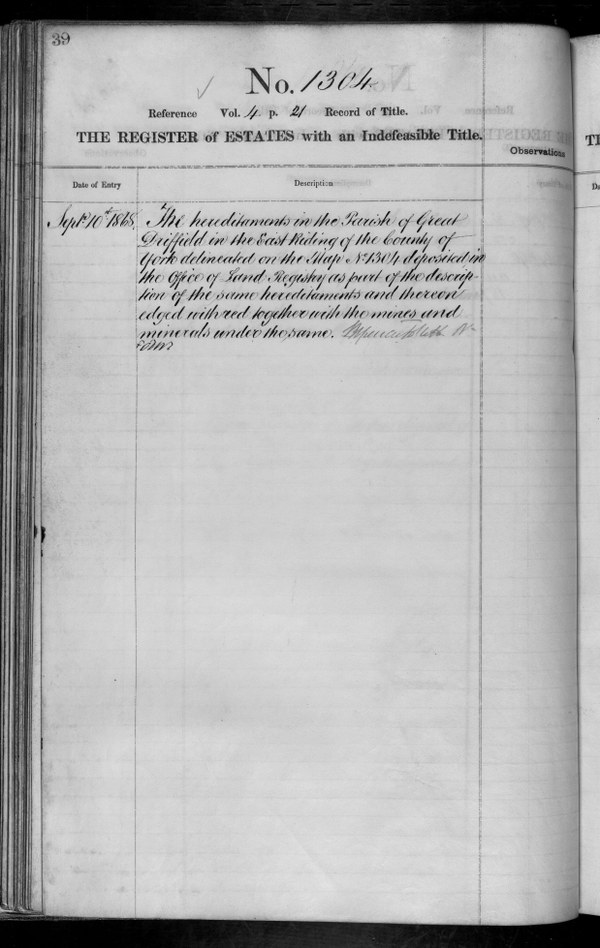 39
No. 1304
Reference Vol. 4 p. 21 Record of Title.
THE REGISTER of ESTATES with an Indefeasible Title.
Observations
Date of Entry
Description
Sept. 10th 1868
The hereditaments in the Parish of Great
Driffield in the East Riding of the County of
York delineated on the Map No 1304 deposited in
the Office of Land Registry as part of the descrip-
tion of the same hereditaments and thereon
edged with red together with the mines and
minerals under the same.